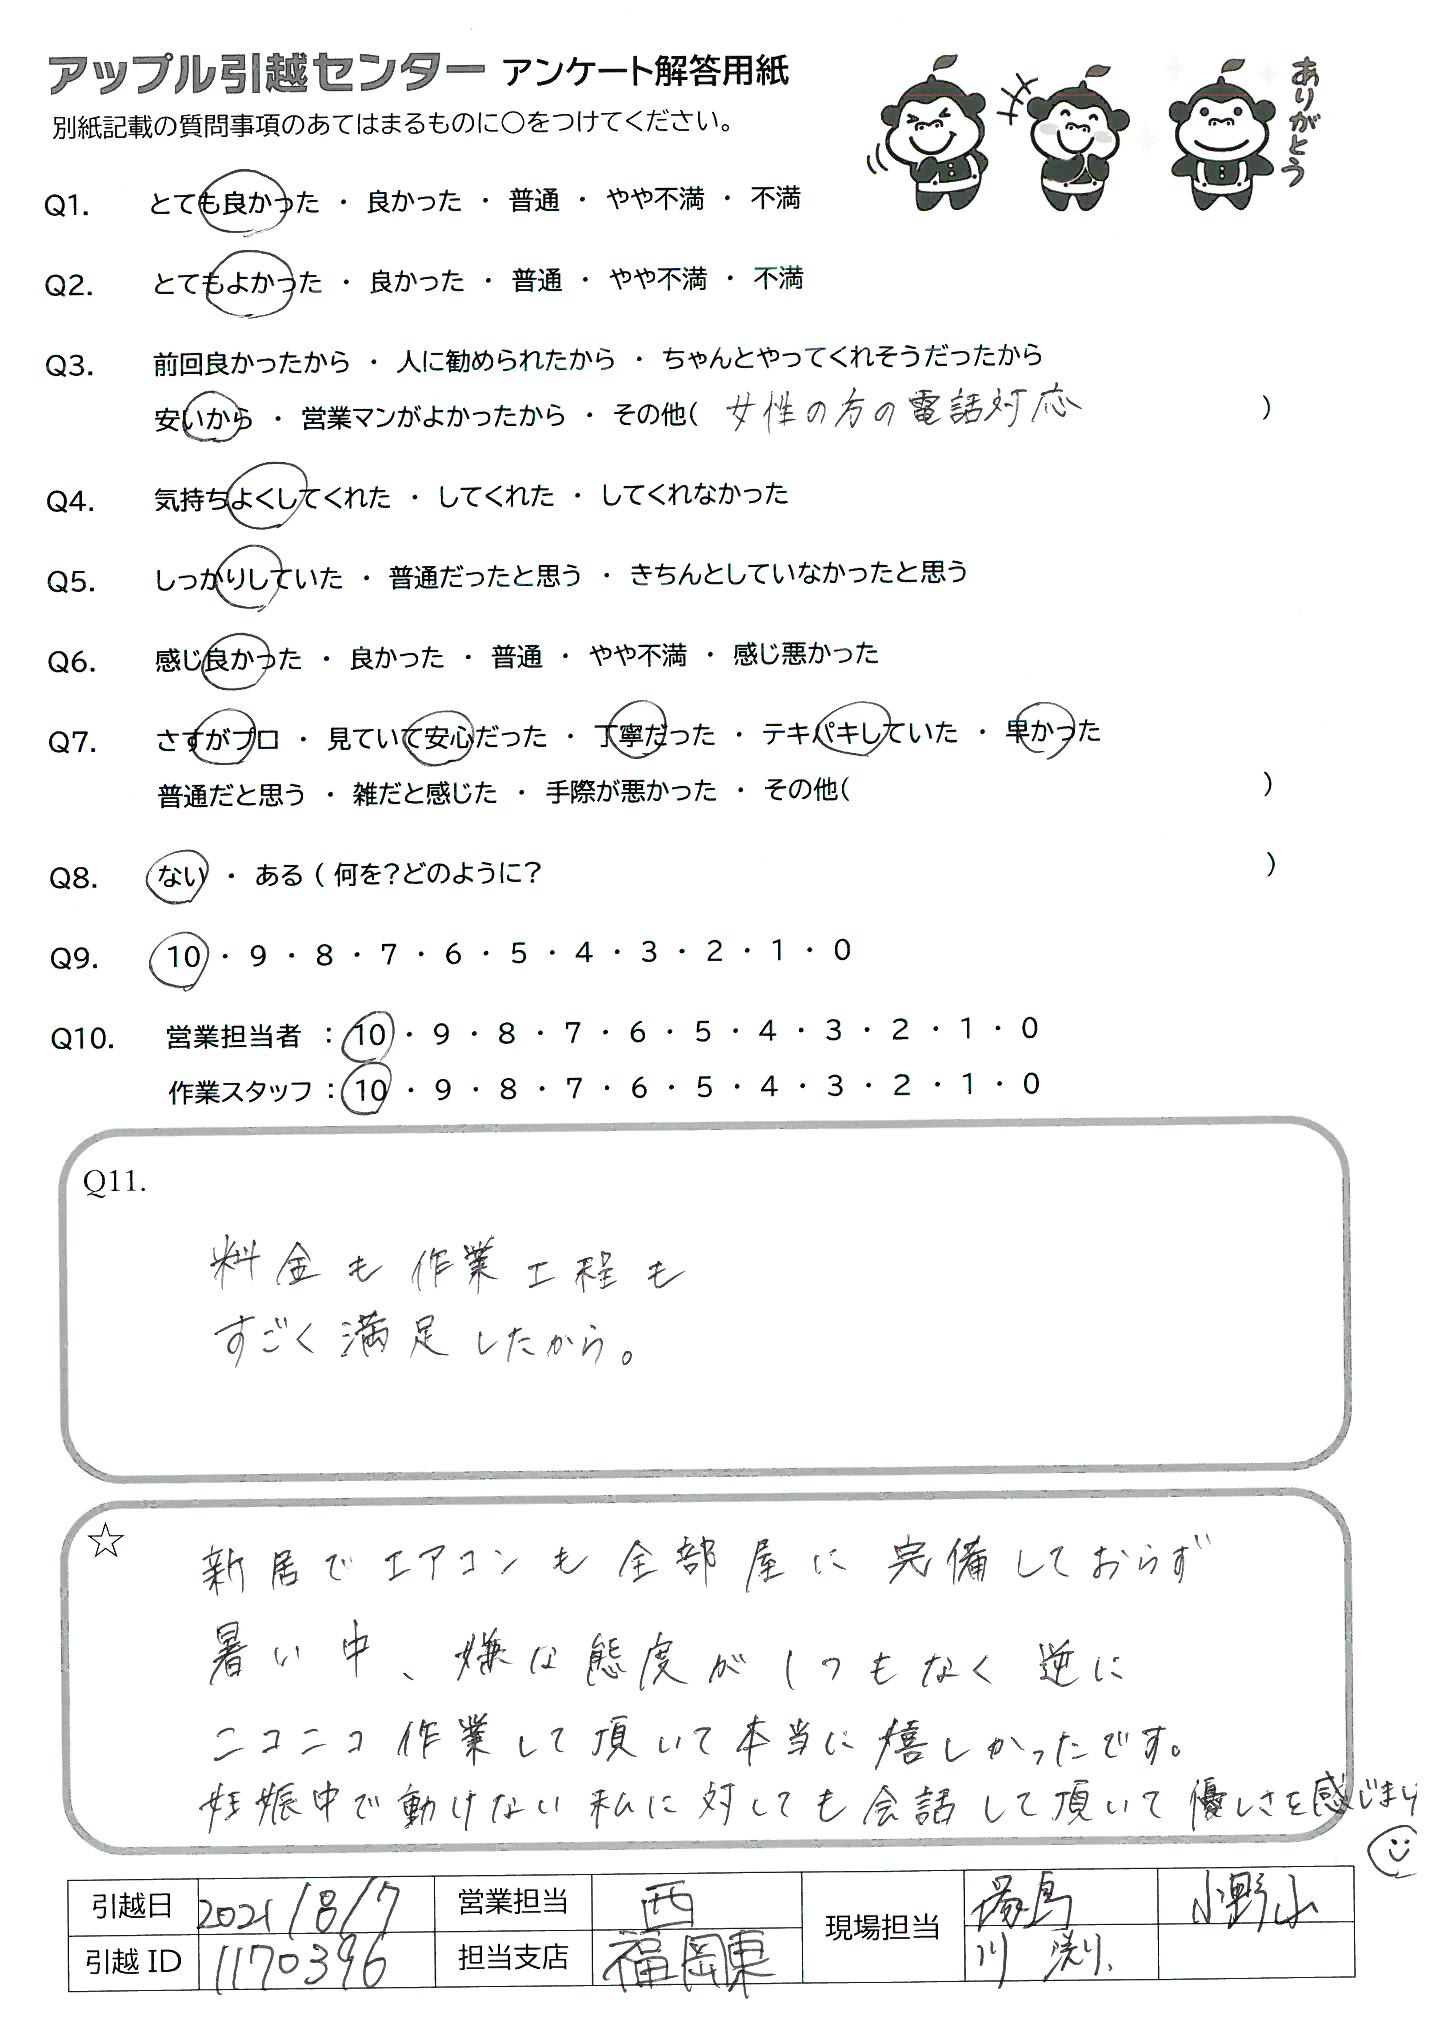 アップル引越センター アンケート解答用紙
ありがとう
別紙記載の質問事項のあてはまるものに○をつけてください。
Q1. とても良かった ・ 良かった ・ 普通 ・ やや不満 ・ 不満
Q2. とてもよかった ・ 良かった ・ 普通 ・ やや不満 ・ 不満
Q3. 前回良かったから ・ 人に勧められたから ・ ちゃんとやってくれそうだったから
安いから ・ 営業マンがよかったから ・ その他( 女性の方の電話対応 )
Q4. 気持ちよくしてくれた ・ してくれた ・ してくれなかった
Q5. しっかりしていた ・ 普通だったと思う ・ きちんとしていなかったと思う
Q6. 感じ良かった ・ 良かった ・ 普通 ・ やや不満 ・ 感じ悪かった
Q7. さすがプロ ・ 見ていて安心だった ・ 丁寧だった ・ テキパキしていた ・ 早かった
普通だと思う ・ 雑だと感じた ・ 手際が悪かった ・ その他( )
Q8. ない ・ ある ( 何を?どのように? )
Q9. 10 ・ 9 ・ 8 ・ 7 ・ 6 ・ 5 ・ 4 ・ 3 ・ 2 ・ 1 ・ 0
Q10. 営業担当者 : 10 ・ 9 ・ 8 ・ 7 ・ 6 ・ 5 ・ 4 ・ 3 ・ 2 ・ 1 ・ 0
作業スタッフ : 10 ・ 9 ・ 8 ・ 7 ・ 6 ・ 5 ・ 4 ・ 3 ・ 2 ・ 1 ・ 0
Q11.
料金も作業工程も
すごく満足したから。
☆
新居でエアコンも全部屋に完備しておらず
暑い中、嫌な態度が1つもなく逆に
ニコニコ作業して頂いて本当に嬉しかったです。
妊娠中で動けない私に対しても会話して頂いて優しさを感じまし
引越日 2021/8/7 営業担当 西 現場担当 小野山
引越 ID 1170396 担当支店 福岡東 川